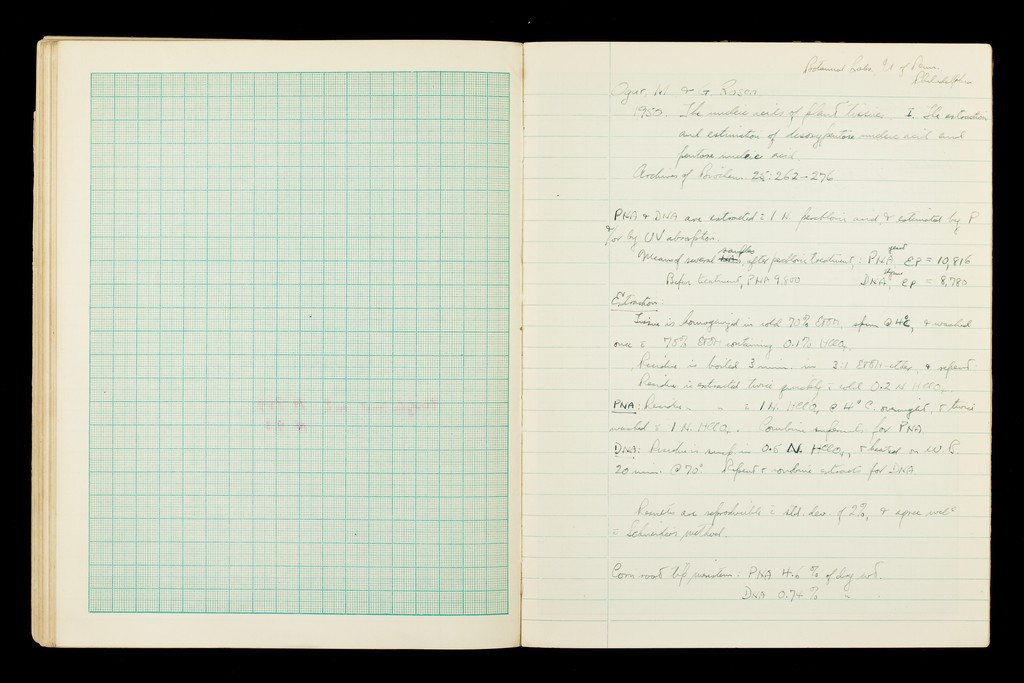 Botanical Labs. U. of Penn.
Philadelphia
Ogur, M. & G. Rosen
1950. The nucleic acids of plant tissues. I. The extraction
and estimation of desoxypentose nucleic acid and
pentose nucleic acid.
Archives of Biochem. 25: 262-276.
PNA & DNA are extracted c̄ 1 N. perchloric acid & estimated by P
&/or by UV absorption.
Means of several samples, after perchloric treatment,: PNA yeast EP = 10,816
Before treatment, PNA 9,800 DNA EP = 8,780
Extraction:
Tissue is homogenized in cold 70% EtOH, spun @ 4°C, & washed
once c̄ 70% EtOH containing 0.1% HClO4.
Residue is boiled 3 min. in 3:1 EtOH-ether, & repeat
Residue is extracted twice quickly c̄ cold 0.2 N HClO4
PNA: Residue " " c̄ 1 N. HClO4 @ 4° C. overnight, & twice
washed c̄ 1 N. HClO4. Combine supernats for PNA
DNA: Residue is susp. in 0.5 N. HClO4, & heated on W. B.
20 min. @ 70° Repeat & combine extracts for DNA
Results are reproducible c̄ std. dev. of 2%, & agree well
c̄ Schneider's method.
Corn root tip meristem: PNA 4.6 % of dry wt.
DNA 0.74 % "